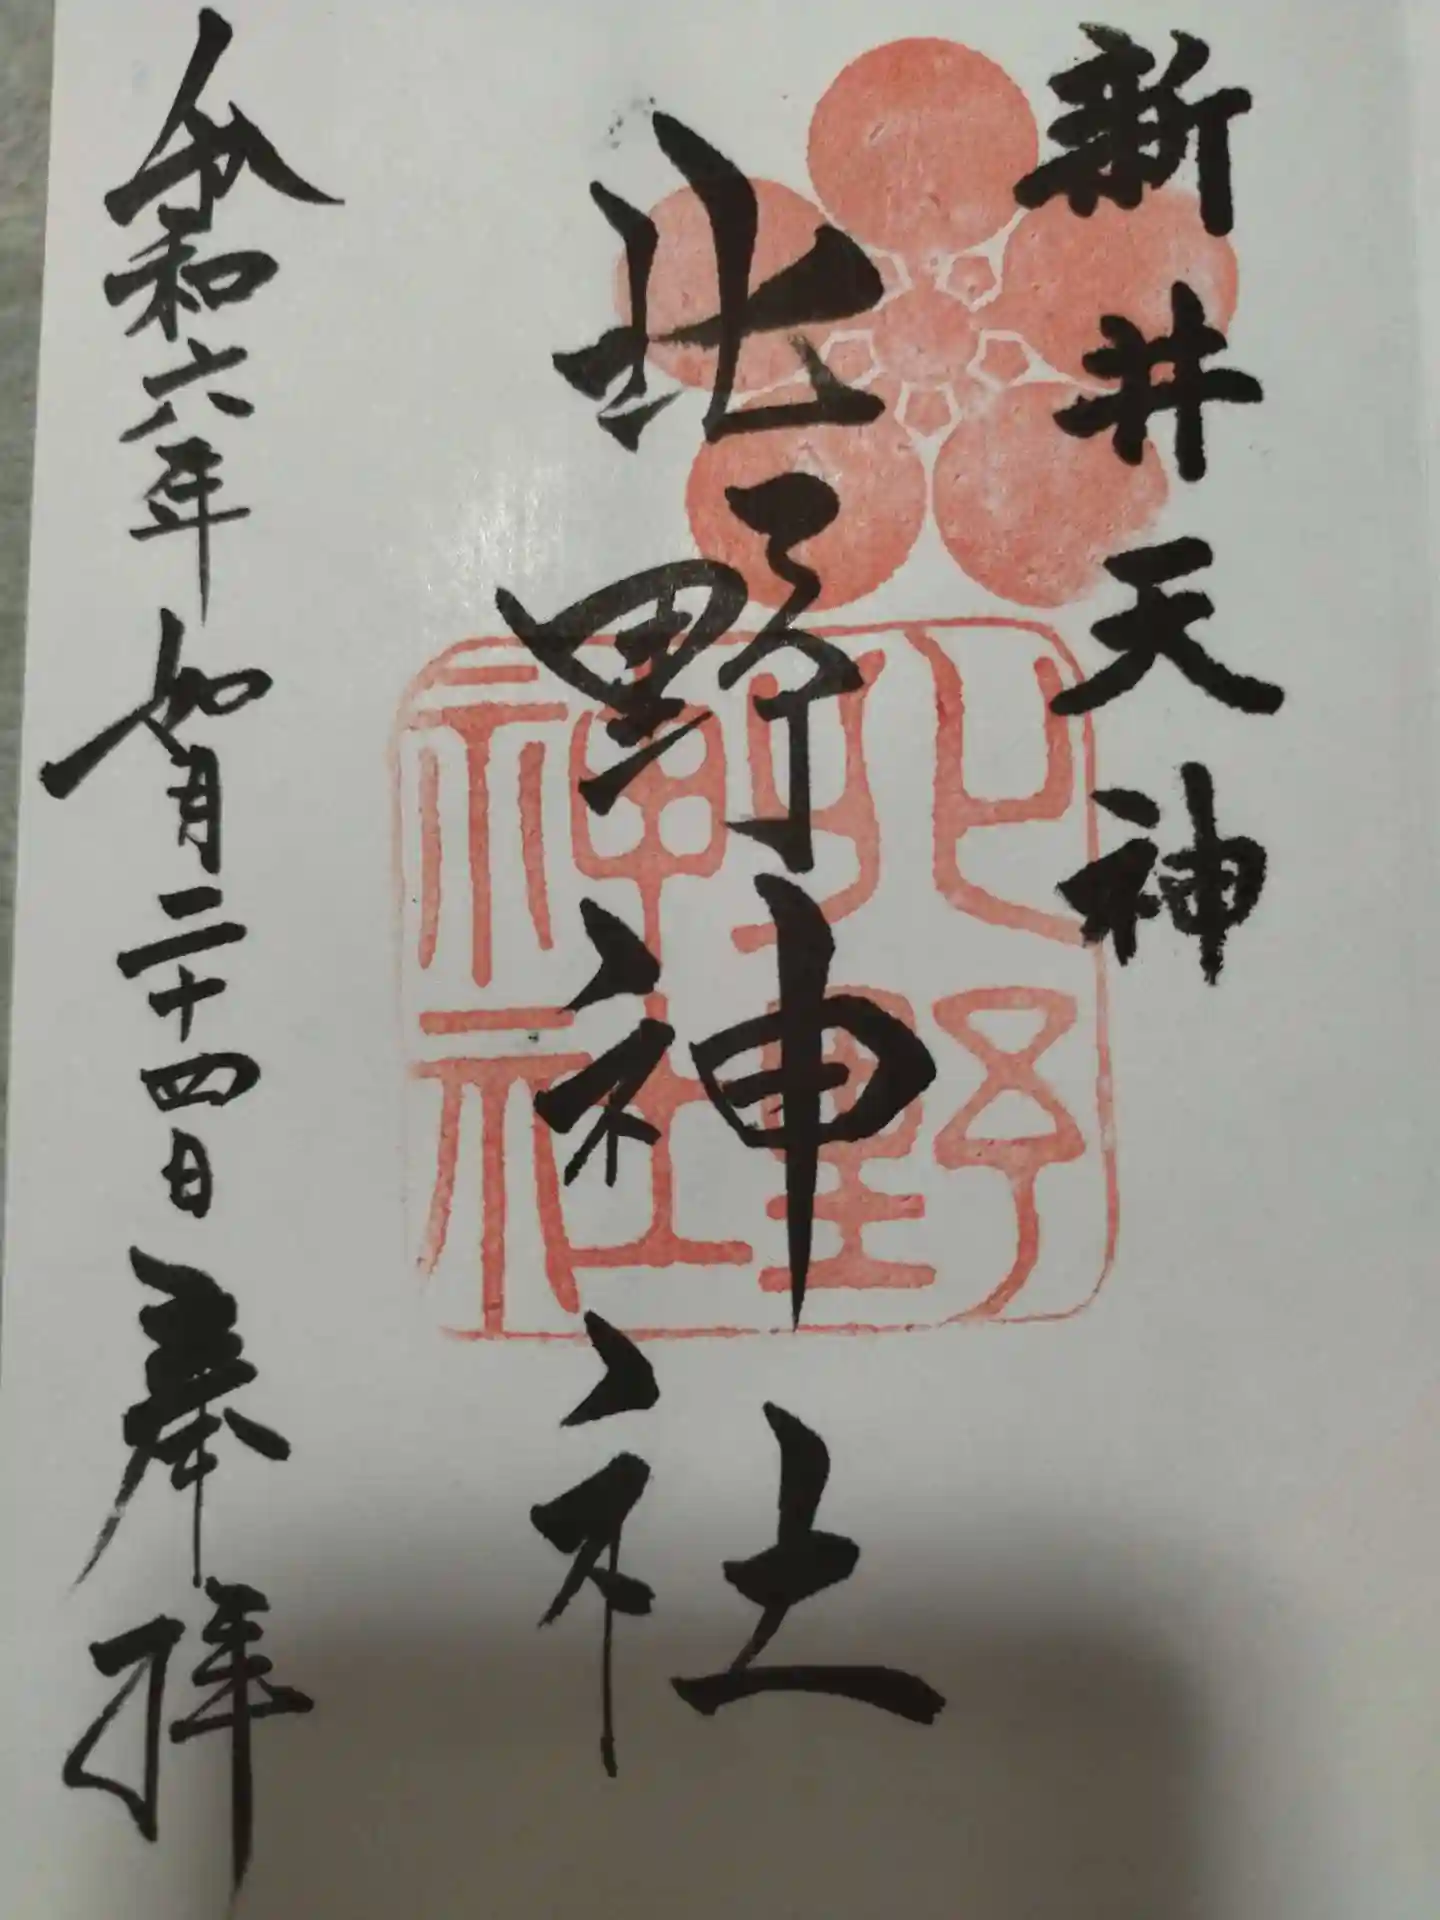 新井天神
北野神社
北野神社
令和六年如月二十四日奉拝